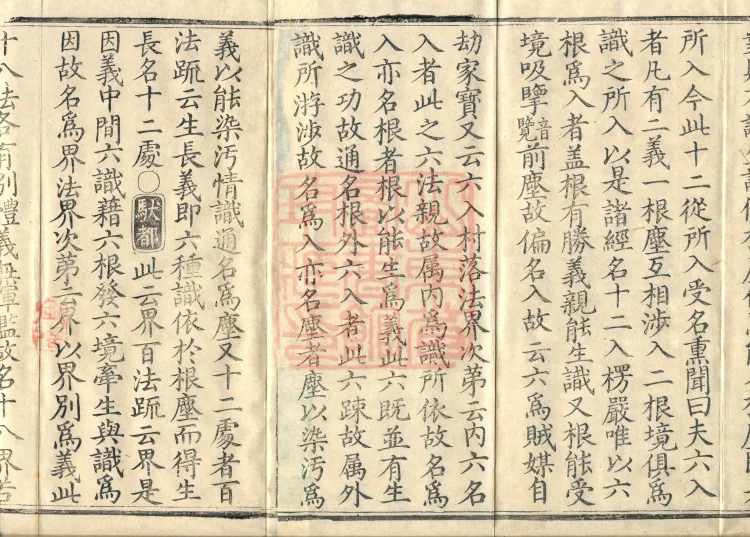 所入今此十二從所入受名熏聞曰夫六入
者凡有二義一根塵互相涉入二根境俱爲
識之所入以是諸經名十二入楞嚴唯以六
根爲入者盖根有勝義親能生識又根能受
境吸擥音覽前塵故偏名入故云六爲賊媒自
劫家寶又云六入村落法界次第云内六名
入者此之六法親故属内爲識所依故名爲
入亦名根者根以能生爲義此六既並有生
識之功故通名根外六入者此六踈故属外
識所游涉故名爲入亦名塵者塵以染污爲
義以能染污情識通名爲塵又十二處者百
法䟽云生長義即六種識依於根塵而得生
長名十二處○馱都此云界百法䟽云界是
因義中間六識藉六根發六境牽生與識爲
因故名爲界法界次第云界以界別爲義此
十八法各有別體義無渾濫故名十八界若